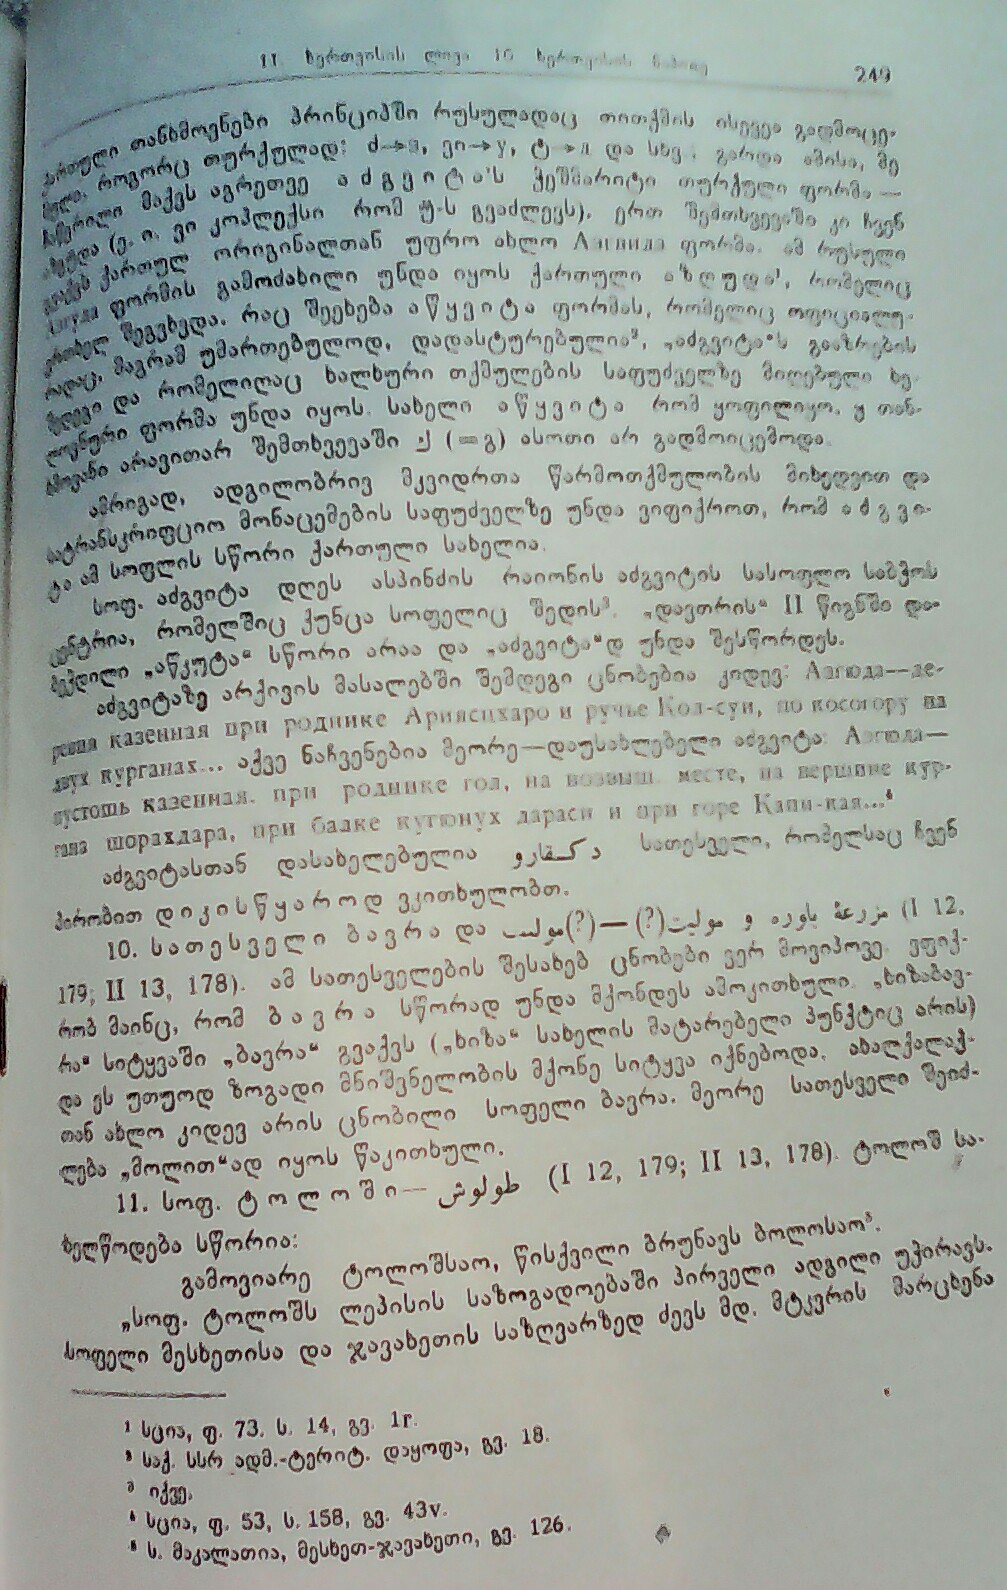 II. ხერთვისის ლივა 10 ხერთვისის ნაჰიე 249
ქართული თანხმოვნები პრინციპში რუსულადაც თითქმის ისევეა გადმოცე-
მული, როგორც თურქულად: ძ→з, ვი→у, ტ→д და სხვ. გარდა ამისა, მე
ჩაწერილი მაქვს აგრეთვე აძგვიტა'ს ჭეშმარიტი თურქული ფორმა —
(ე. ი. ვი კოპლექსი რომ უ-ს გვაძლევს). ერთ შემთხვევაში კი ჩვენ
გვაქვს ქართულ ორიგინალთან უფრო ახლო Азгвида ფორმა. ამ რუსული
ფორმის გამოძახილი უნდა იყოს ქართული აზღუდა¹, რომელიც
ერთხელ შეგვხვდა. რაც შეეხება აწყვიტა ფორმას, რომელიც ოფიციალუ-
რადაც, მაგრამ უმართებულოდ, დადასტურებულია², „აძგვიტა“ს გააზრების
შედეგი და რომელიღაც ხალხური თქმულების საფუძველზე მიღებული ხე-
ლოვნური ფორმა უნდა იყოს. სახელი აწყვიტა რომ ყოფილიყო, ყ თან-
ხმოვანი არავითარ შემთხვევაში ك (=გ) ასოთი არ გადმოიცემოდა.
ამრიგად, ადგილობრივ მკვიდრთა წარმოთქმულობის მიხედვით და
სატრანსკრიფციო მონაცემების საფუძველზე უნდა ვიფიქროთ, რომ აძგვი-
ტა ამ სოფლის სწორი ქართული სახელია.
სოფ. აძგვიტა დღეს ასპინძის რაიონის აძგვიტის სასოფლო საბჭოს
ცენტრია, რომელშიც ქუნცა სოფელიც შედის³. „დავთრის“ II წიგნში და-
ბეჭდილი „აწკუტა“ სწორი არაა და „აძგვიტა“დ უნდა შესწორდეს.
აძგვიტაზე არქივის მასალებში შემდეგი ცნობებია კიდევ: Азгюда—де-
ревня казенная при роднике Арнясихаро и ручье Кол-суи, по косогору на
двух курганах... აქვე ნაჩვენებია მეორე—დაუსახლებელი აძგვიტა: Азгюда—
пустошь казенная. при роднике гол, на возвыш. месте, на вершине кур-
гана шорахдара, при балке кугюнух дараси и при горе Капи-кая...⁴
აძგვიტასთან დასახელებულია دكسقارو სათესველი, რომელსაც ჩვენ
პირობით დიკისწყაროდ ვკითხულობთ.
10. სათესველი ბავრა და مزرعهٔ باوره و موليت(?)—(?)موليت (I 12,
179; II 13, 178). ამ სათესველების შესახებ ცნობები ვერ მოვიპოვე. ვფიქ-
რობ მაინც, რომ ბავრა სწორად უნდა მქონდეს ამოკითხული. „ხიზაბავ-
რა“ სიტყვაში „ბავრა“ გვაქვს („ხიზა“ სახელის მატარებელი პუნქტიც არის)
და ეს უთუოდ ზოგადი მნიშვნელობის მქონე სიტყვა იქნებოდა. ახალქალაქ-
თან ახლო კიდევ არის ცნობილი სოფელი ბავრა. მეორე სათესველი შეიძ-
ლება „მოლით“ად იყოს წაკითხული.
11. სოფ. ტოლოში— طولوش (I 12, 179; II 13, 178). ტოლოშ სა-
ხელწოდება სწორია:
გამოვიარე ტოლოშსაო, წისქვილი ბრუნავს ბოლოსაო⁵.
„სოფ. ტოლოშს ლეპისის საზოგადოებაში პირველი ადგილი უჭირავს.
სოფელი მესხეთისა და ჯავახეთის საზღვარზედ ძევს მდ. მტკვრის მარცხენა
¹ სცია, ფ. 73. ს. 14, გვ. 1r.
² საქ. სსრ ადმ.-ტერიტ. დაყოფა, გვ. 18.
³ იქვე.
⁴ სცია, ფ. 53, ს. 158, გვ. 43v.
⁵ ს. მაკალათია, მესხეთ-ჯავახეთი, გვ. 126.